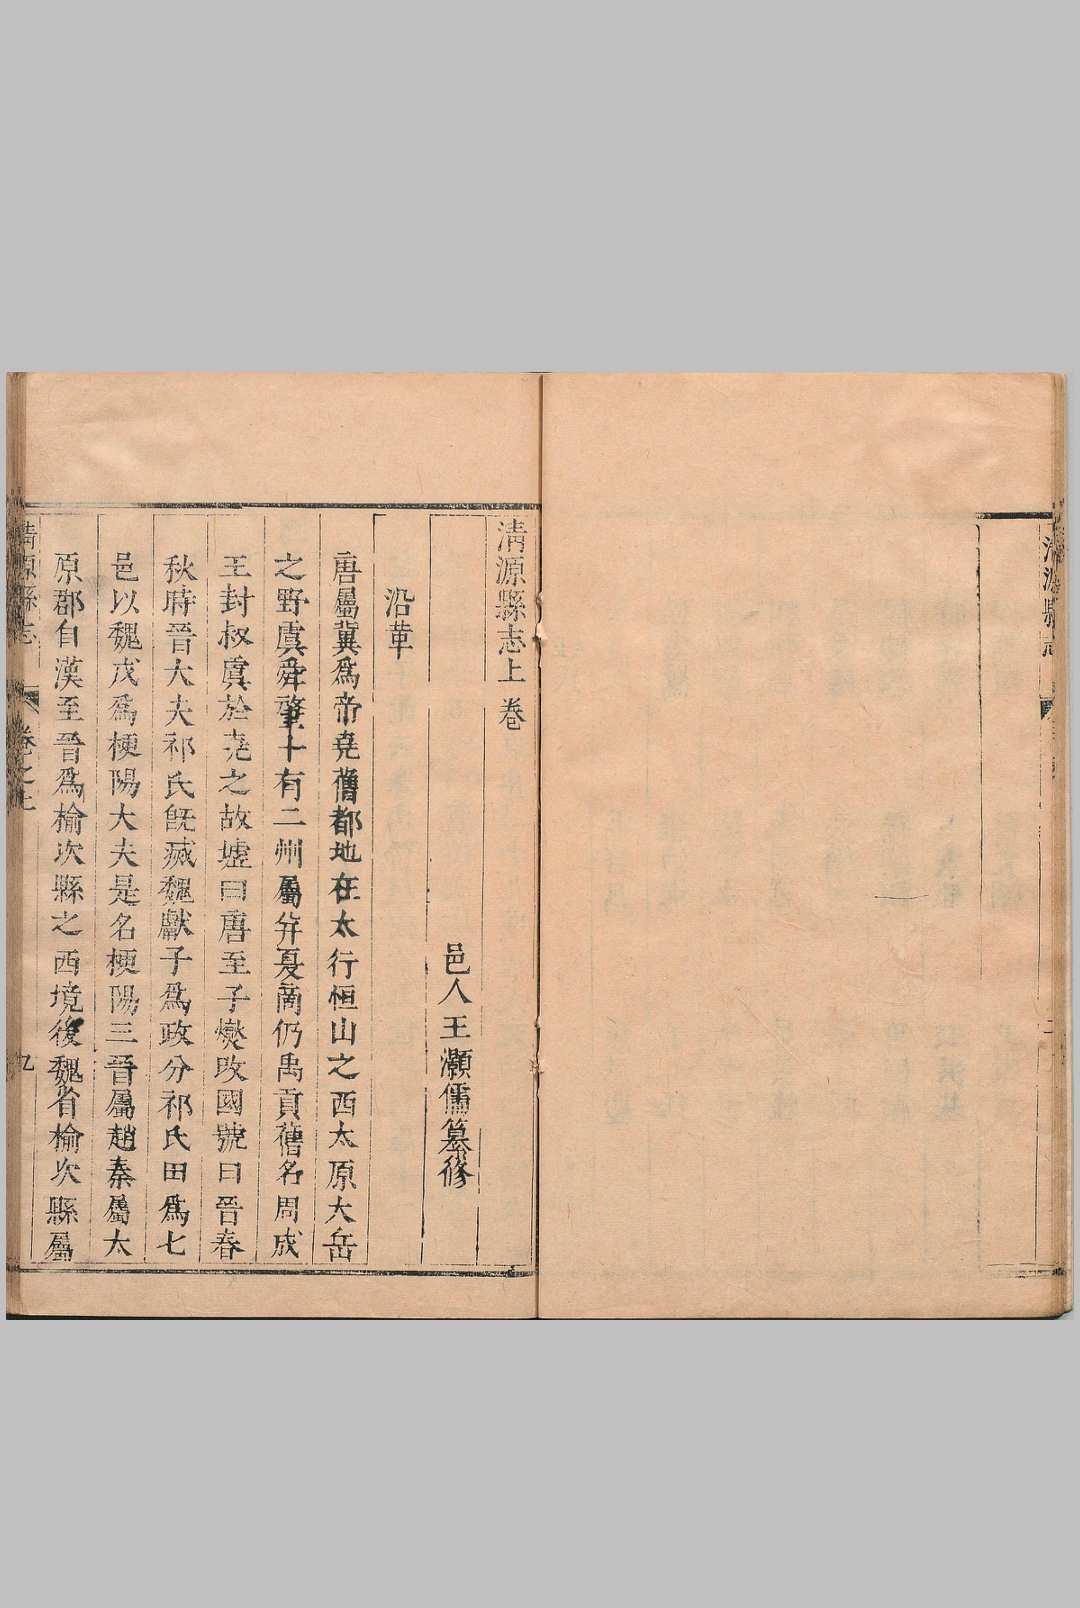 清源縣志
清源縣志上卷
邑人王灝儒纂修
沿革
唐屬冀爲帝堯舊都地在太行恒山之西太原大岳
之野虞舜肇十有二州屬并夏商仍禹貢舊名周成
王封叔虞於堯之故墟曰唐至子燮改國號曰晉春
秋時晉大夫祁氏旣滅魏獻子爲政分祁氏田爲七
邑以魏戊爲梗陽大夫是名梗陽三晉屬趙秦屬太
原郡自漢至晉爲榆次縣之西境後魏省榆次縣屬
清源縣志 卷之上